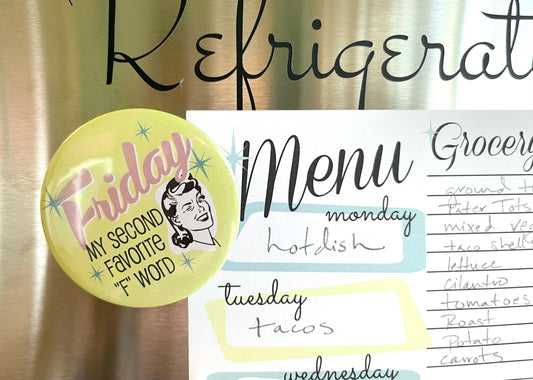 Refrigerat
Friday
MY SECOND
FAVORITE
"F" WORD
Menu
monday
hotdish
tuesday
tacos
wednesday
Grocery
ground
Tater Tots
mixed
taco shell
lettuce
cilantro
tomatoes
Roast
Potato
carrots